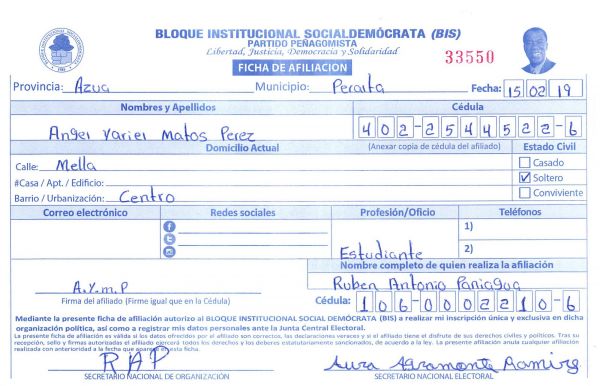 BLOQUE INSTITUCIONAL SOCIALDEMÓCRATA (BIS)
PARTIDO PEÑAGOMISTA
Libertad, Justicia, Democracia y Solidaridad
33550
FICHA DE AFILIACION
Provincia: Azua Municipio: Peralta Fecha: 15 02 19
Nombres y Apellidos Cédula
Angel Yariel Matos Perez 402-2544522-6
Domicilio Actual (Anexar copia de cédula del afiliado) Estado Civil
Calle: Mella Casado
#Casa / Apt. / Edificio: Soltero
Barrio / Urbanización: Centro Conviviente
Correo electrónico Redes sociales Profesión/Oficio Teléfonos
1)
Estudiante 2)
Nombre completo de quien realiza la afiliación
A.Y.m.P Ruben Antonio Paniagua
Firma del afiliado (Firme igual que en la Cédula) Cédula: 106-0002210-6
Mediante la presente ficha de afiliación autorizo al BLOQUE INSTITUCIONAL SOCIAL DEMÓCRATA (BIS) a realizar mi inscripción única y exclusiva en dicha
organización política, así como a registrar mis datos personales ante la Junta Central Electoral.
La presente ficha de afiliación es válida si los datos ofrecidos por el afiliado son correctos, las declaraciones veraces y si el afiliado tiene el disfrute de sus derechos civiles y políticos. Tras su
recepción, sello y firmas autorizadas el afiliado ejercerá todos los derechos y los deberes estatutariamente sancionados, de acuerdo a la ley. La presente afiliación anula cualquier afiliación
realizada con anterioridad a la fecha que aparece en esta ficha.
RAP Aura Agramonte Ramirez
SECRETARIO NACIONAL DE ORGANIZACIÓN SECRETARIO NACIONAL ELECTORAL